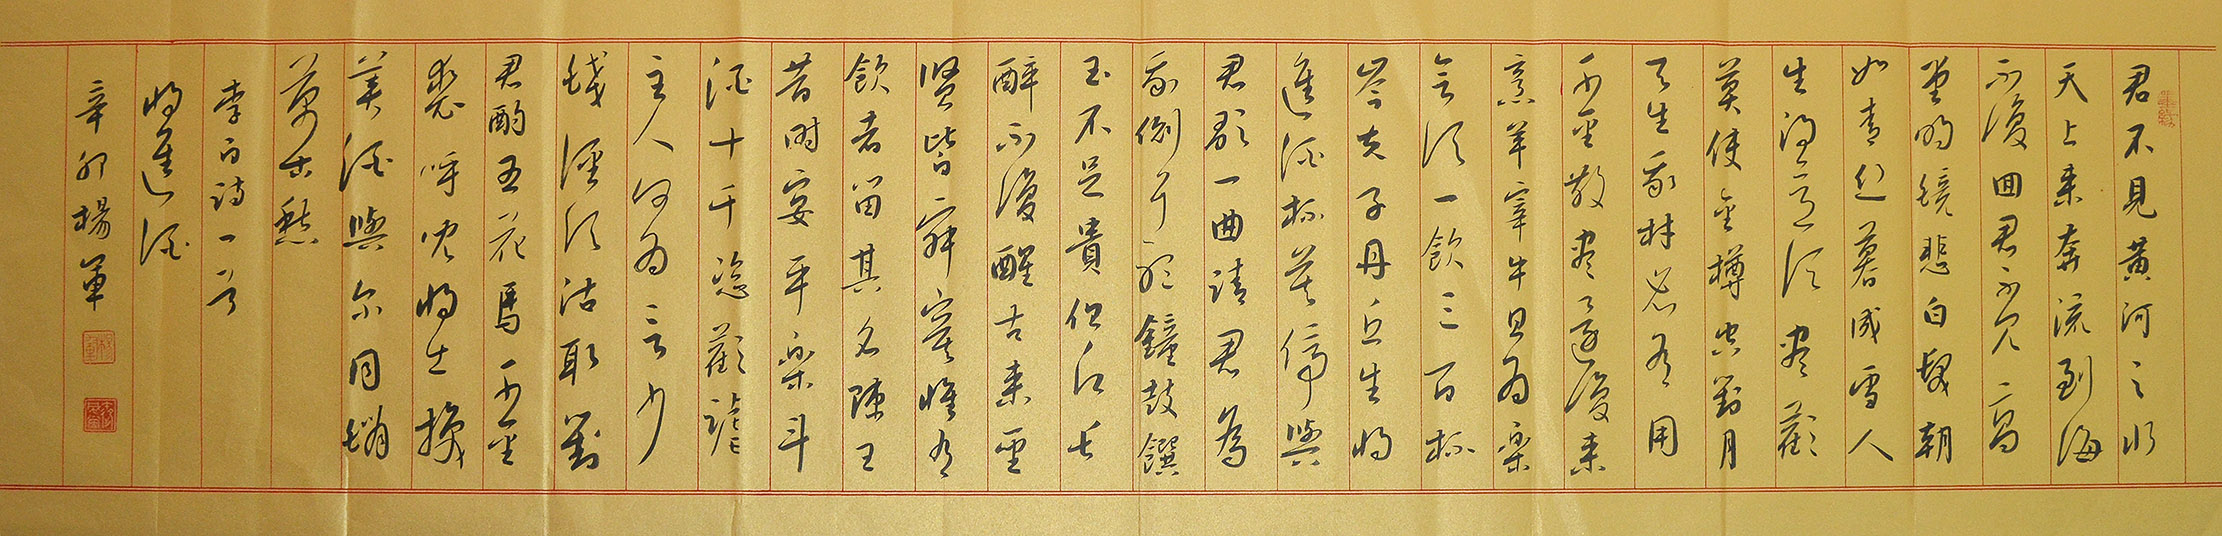 君不見黄河之水
天上来奔流到海
不復回君不見高
堂明鏡悲白髮朝
如青丝暮成雪人
生得意須盡歡
莫使金樽空對月
天生我材必有用
千金散盡還復来
烹羊宰牛且为樂
會須一飲三百杯
岑夫子丹丘生将
進酒杯莫停與
君歌一曲請君為
我側耳聽鐘鼓饌
玉不足貴但願長
醉不復醒古来聖
賢皆寂寞惟有
飲者留其名陳王
昔时宴平樂斗
酒十千恣歡謔
主人何为言少
錢徑須沽取對
君酌五花馬千金
裘呼児将出換
美酒與尔同銷
萬古愁
李白詩一首
将進酒
辛卯楊軍